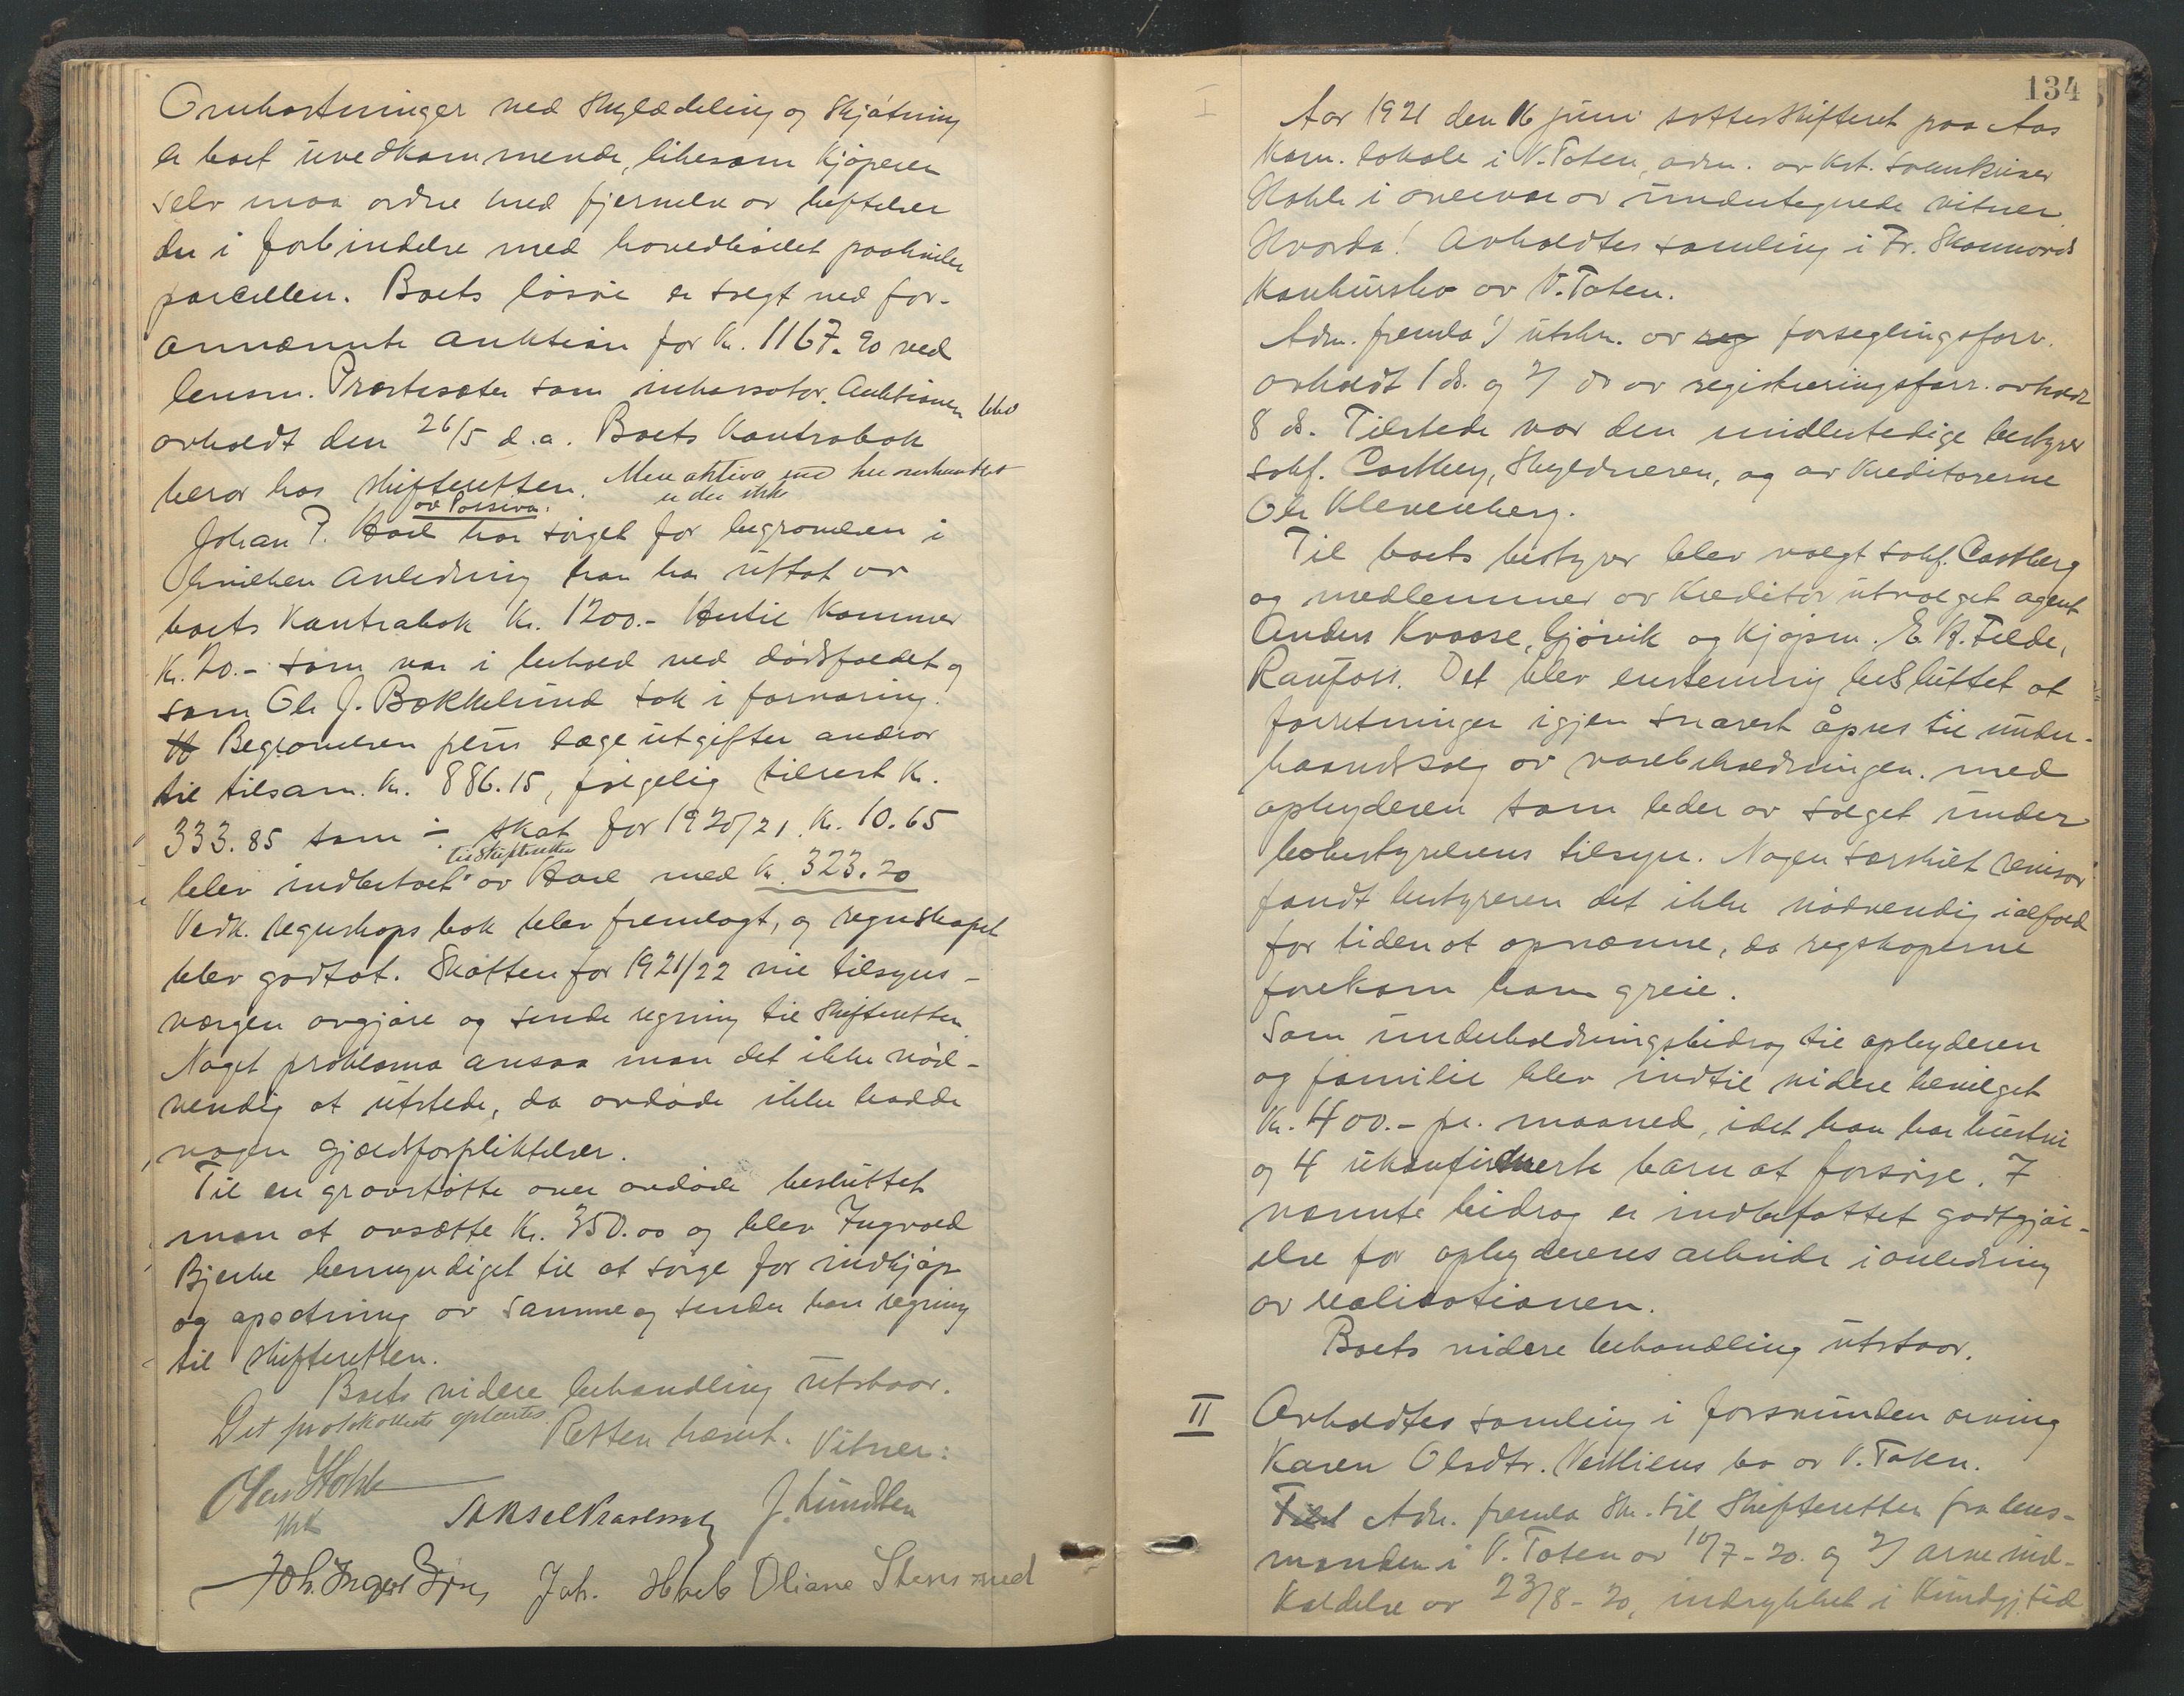 Omkostninger ved skylddeling og skjøtning
er boet uvedkommende, likesom kjøperen
selv maa ordne med fjernelse av heftelser
der i forbindelse med hovedbølet paahviler
parcellen. Boets løsøre er solgt ved for-
annævnte auktion for Kr. 1167.90 ved
lensm. Præstesæter som inkassator. Auktionen blev
avholdt den 26/5 d.a. Boets kontrabok
beror hos skifteretten. Mere aktiva end her omhandlet
er der ikke
av Passiva.
Johan P. Hoel har sørget for begravelsen i
hvilken anledning han har uttat av
boets kontrabok Kr. 1200.- Hertil kommer
Kr. 20.- som var i behold ved dødsfaldet og
som Ole J. Bøkkelund tok i forvaring.
Begravelsen plus lægeutgifter andrar
til tilsam. Kr. 886.15, følgelig tilrest Kr.
333.85 som ÷ skat for 1920/21 Kr. 10.65
til skifteretten
blev indbetalt av Hoel med Kr. 323.20
Vedk. regnskapsbok blev fremlagt, og regnskapet
blev godtat. Skatten for 1921/22 vil tilsyns-
værgen avgjøre og sende regning til skifteretten.
Noget proklama ansaa man det ikke nød-
vendig at utstede, da avdøde ikke hadde
nogen gjældsforpliktelser.
Til en gravstøtte over avdøde besluttet
man at avsætte Kr. 350.00 og blev Ingvald
Bjerke bemyndiget til at sørge for indkjøp
og opsætning av samme og sender han regning
til skifteretten.
Boets videre behandling utstaar.
Det protokollerte oplæstes. Retten hævet. Vitner:
Olav Hokle
Kst
Aksel J. Lundsten
Joh. Joh. Hoel Oliane Stensrud
134
I
Aar 1921 den 16 juni sattes skifteret paa Aas
Kom. lokale i V. Toten, adm. av Kst. sorenskriver
Hokle i overvær av undertegnede vitner.
Hvorda! Avholdtes samling i Fr. Skonnords
Konkursbo av V. Toten.
Adm. fremla 1) utskr. av reg forseglingsforr.
avholdt 1 ds. og 2) do av registreringsforr. avholdt
8 ds. Tilstede var den midlertidige bestyrer
sakf. Castberg, skyldneren, og av kreditorerne
Ole Klevenberg.
Til boets bestyrer blev valgt sakf. Castberg
og medlemmer av kreditorutvalget agent
Anders Kraase, Gjøvik og kjøpm. E. A. Felde,
Raufoss. Det blev enstemmig besluttet at
forretningen igjen snarest åpnes til under-
haandssalg av varebeholdningen. med
opbyderen som leder av salget under
bobestyrerens tilsyn. Nogen særskilt revisor
fandt bestyreren det ikke nødvendig ialfald
for tiden at opnævne, da regskaperne
forekom ham greie.
Som underholdningsbidrag til opbyderen
og familie blev indtil videre bevilget
Kr. 400.- pr. maaned, idet han har hustru
og 4 ukonfirmerte barn at forsørge. I
nævnte bidrag er indbefattet godtgjør-
else for opbyderens arbeide i anledning
av realisationen.
Boets videre behandling utstaar.
II
Avholdtes samling i forsvunden arving
Karen Olsdtr. Vestliens bo av V. Toten.
Tilst Adm. fremla skr. til skifteretten fra lens-
manden i V. Toten av 10/7-20. og 2) arveind-
kaldelse av 23/8-20, indrykket i Kundgj.tid